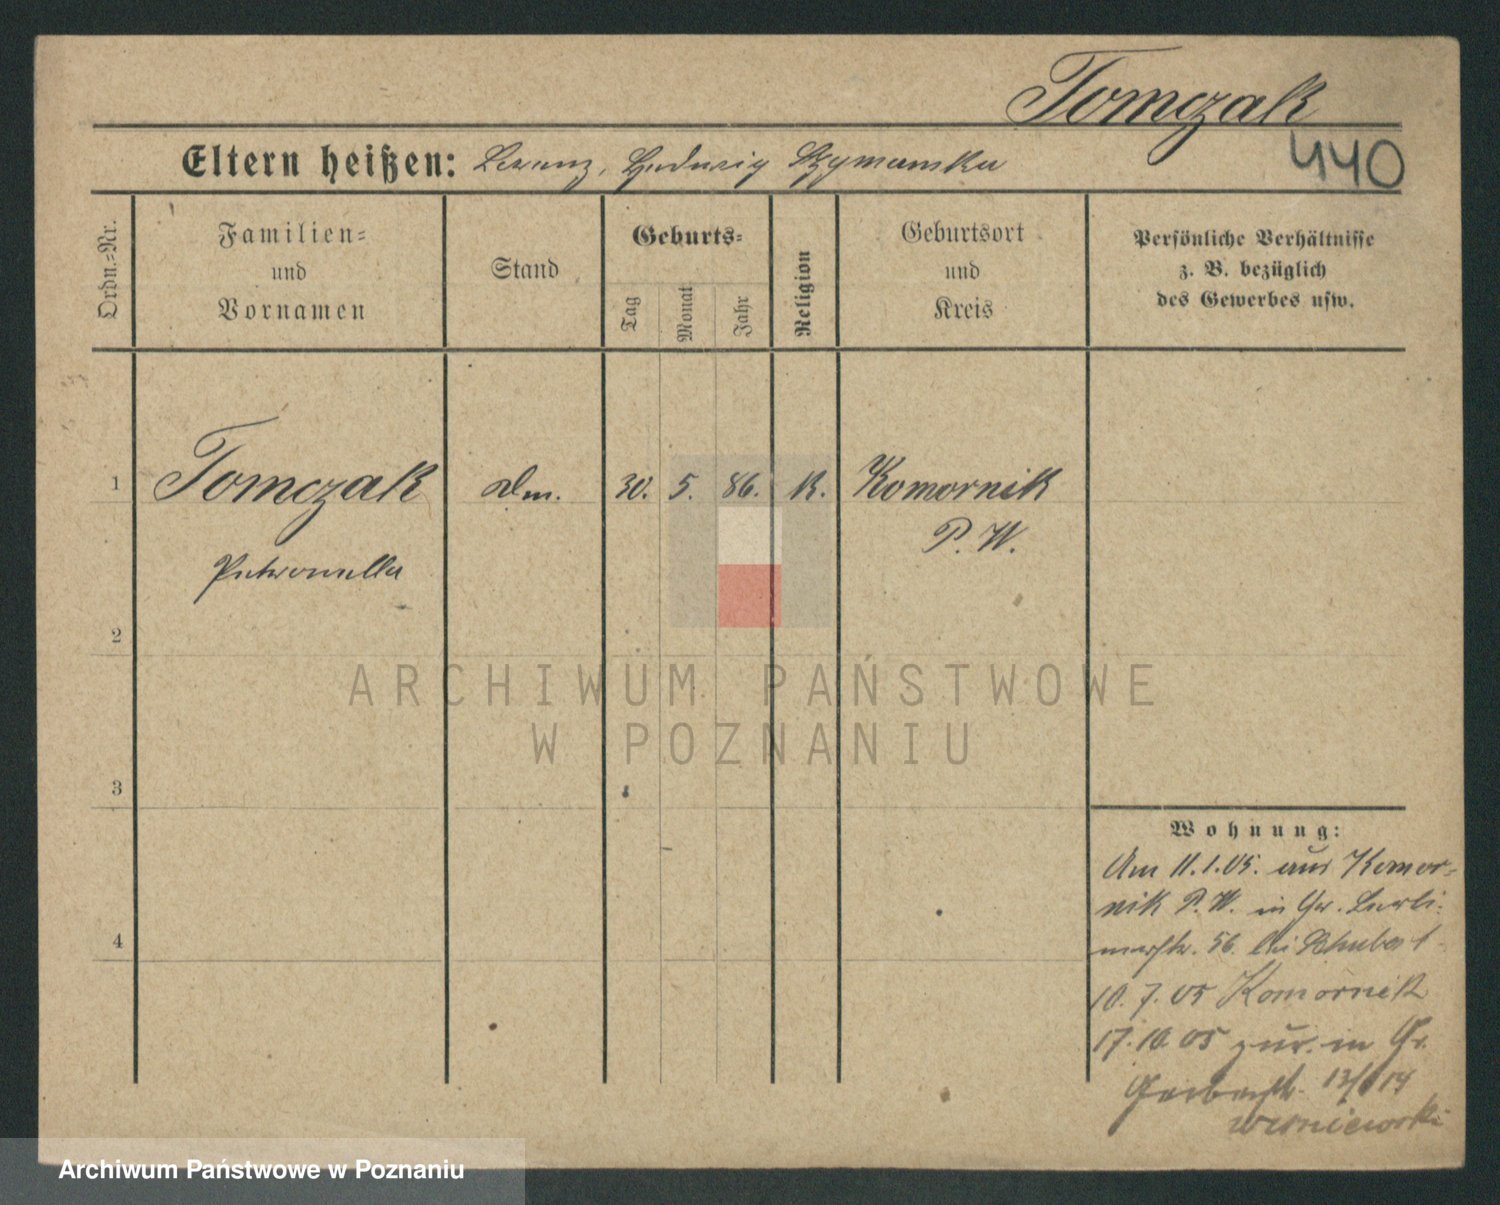 Tomczak
440
Eltern heißen: Lorenz, Hedwig Szymanska
Ordn.-Nr.
Familien-
und
Vornamen
Stand
Geburts-
Tag
Monat
Jahr
Religion
Geburtsort
und
Kreis
Persönliche Verhältnisse
z. B. bezüglich
des Gewerbes usw.
1 Tomczak Dm. 30. 5. 86. K. Komornik
Petronella P. W.
2
ARCHIWUM PAŃSTWOWE
W POZNANIU
3
4
Wohnung:
Am 11.1.05. aus Komor-
nik P. W. in Gr. Berli-
nerstr. 56. bei Schubert
10. 7. 05 Komornik
17.10 05 zur. in Gr.
Gerberstr. 13/14
Wisniewski
Archiwum Państwowe w Poznaniu